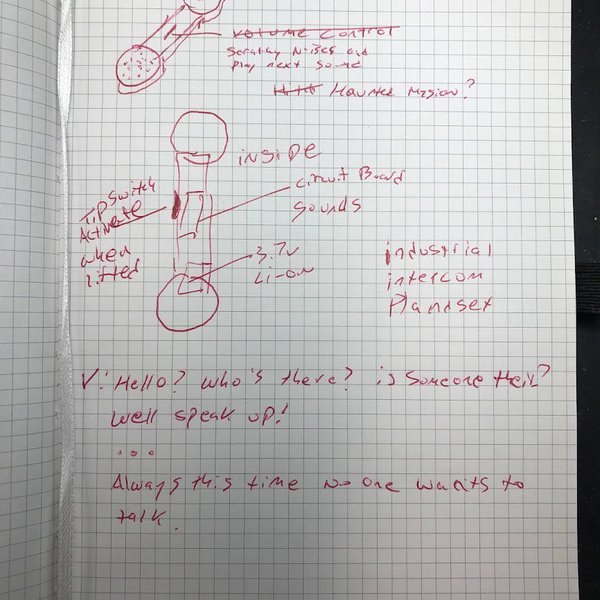 Volume Control
Scratchy Noises and
Play next Sound
Haunted Mission?
inside
Circuit Board
Sounds
Tip Switch
Activate
when
lifted
3.7v
Li-on
industrial
intercom
V: Hello? who's there? is Someone their?
well speak up!
...
Always this time no one wants to
talk.